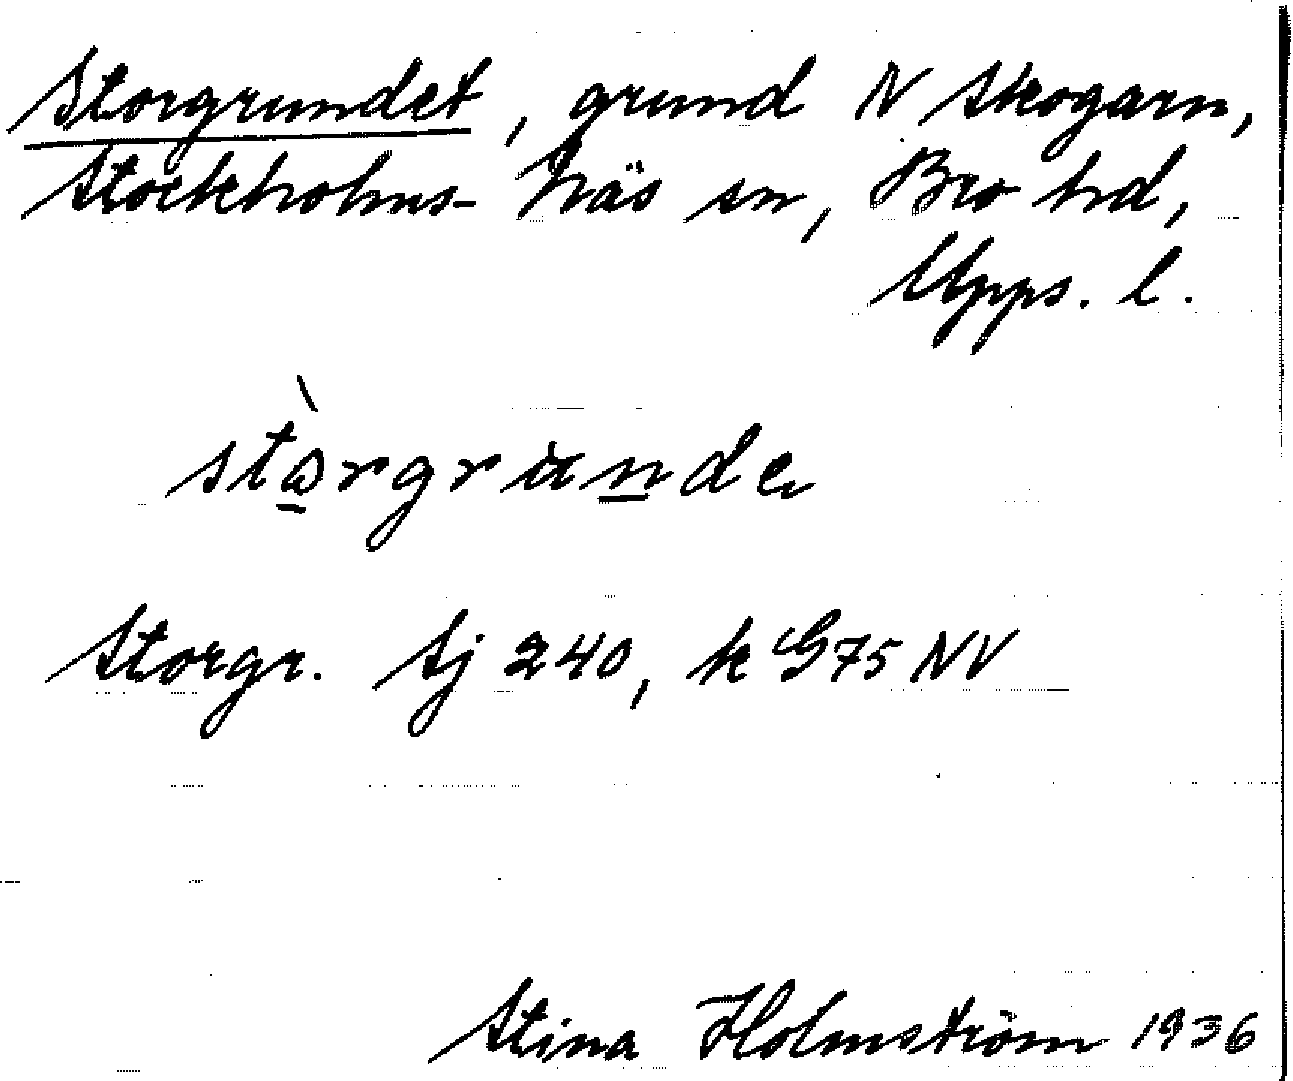 Storgrundet, grund N Skogarn,
Stockholms-Näs sn, Bro hd,
Upps. l.
Storgr. Sj 240, k G75 NV
Stina Holmström 1936